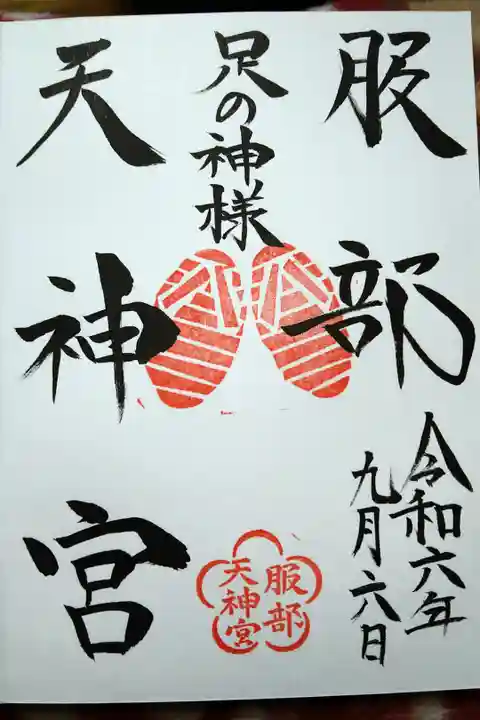 服部
天神宮
足の神様
令和六年
九月六日
服部
天神宮